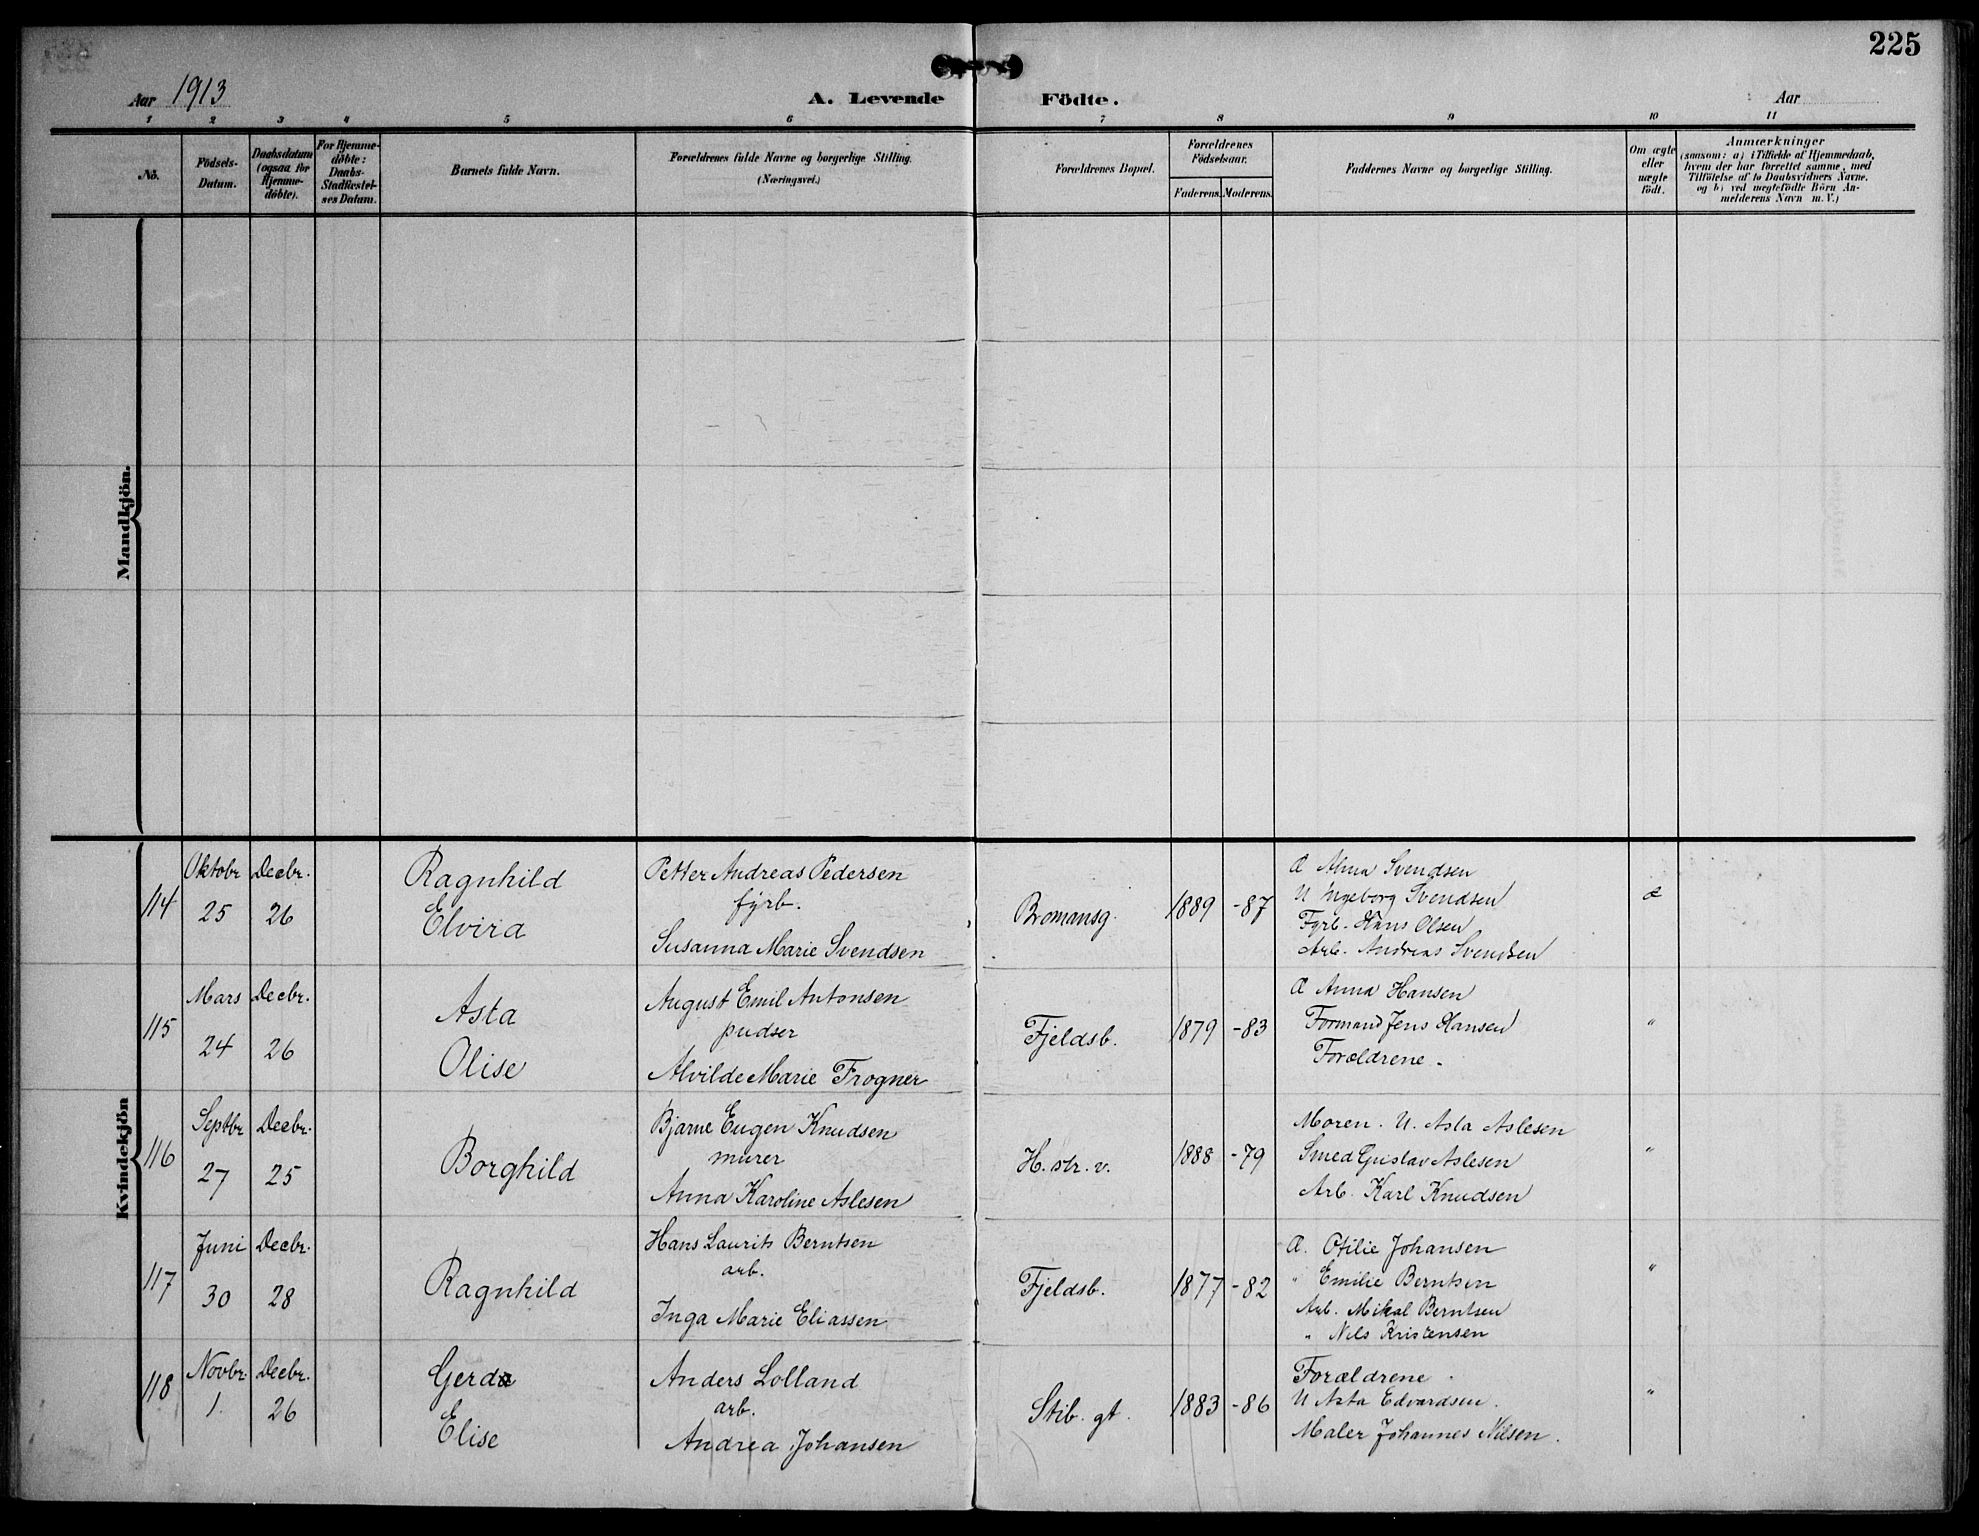 225
Aar 1913
A. Levende Födte.
Aar
1 2 3 4 5 6 7 8 9 10 11
No.
Födsels-
Datum.
Daabsdatum
(ogsaa for
Hjemme-
döbte).
For Hjemme-
döbte:
Daabs-
Stadfæstel-
ses Datum.
Barnets fulde Navn.
Forældrenes fulde Navne og borgerlige Stilling.
(Næringsvei.)
Forældrenes Bopæl.
Forældrenes
Födselsaar.
Faderens. Moderens.
Faddernes Navne og borgerlige Stilling.
Om ægte
eller
uægte
födt.
Anmærkninger
(saasom: a) i Tilfælde af Hjemmedaab,
hvem der har forrettet samme, med
Tilföielse af to Daabsvidners Navne,
og b) ved uægtefödte Börn An-
melderens Navn m. V.)
Mandkjön.
Kvindekjön
114
Oktobr
25
Decbr.
26
Ragnhild
Elvira
Petter Andreas Pedersen
fyrb.
Susanna Marie Svendsen
Bromansg.
1889 -87
Æ Alma Svendsen
U Ingeborg Svendsen
Fyrb. Hans Olsen
Arb. Andreas Svendsen
æ
115
Mars
24
Decbr.
26
Asta
Olise
August Emil Antonsen
pudser
Alvilde Marie Frogner
Fjeldsb.
1879 -83
Æ Anna Hansen
Formand Jens Hansen
Forældrene.
"
116
Septbr
27
Decbr.
25
Borghild
Bjarne Eugen Knudsen
murer
Anna Karoline Aslesen
H. str. v.
1888 -79
Moren. U. Asta Aslesen
Smed Gustav Aslesen
Arb. Karl Knudsen
"
117
Juni
30
Decbr.
28
Ragnhild
Hans Laurits Berntsen
arb.
Inga Marie Eliassen
Fjeldsb.
1877 -82
Æ. Otilie Johansen
" Emilie Berntsen
Arb. Mikal Berntsen
" Nils Kristensen
"
118
Novbr.
1.
Decbr.
26
Gerda
Elise
Anders Lolland
arb.
Andrea Johansen
Stib. gt.
1883 -86
Forældrene.
U Asta Edvardsen.
Maler Johannes Nilsen.
"